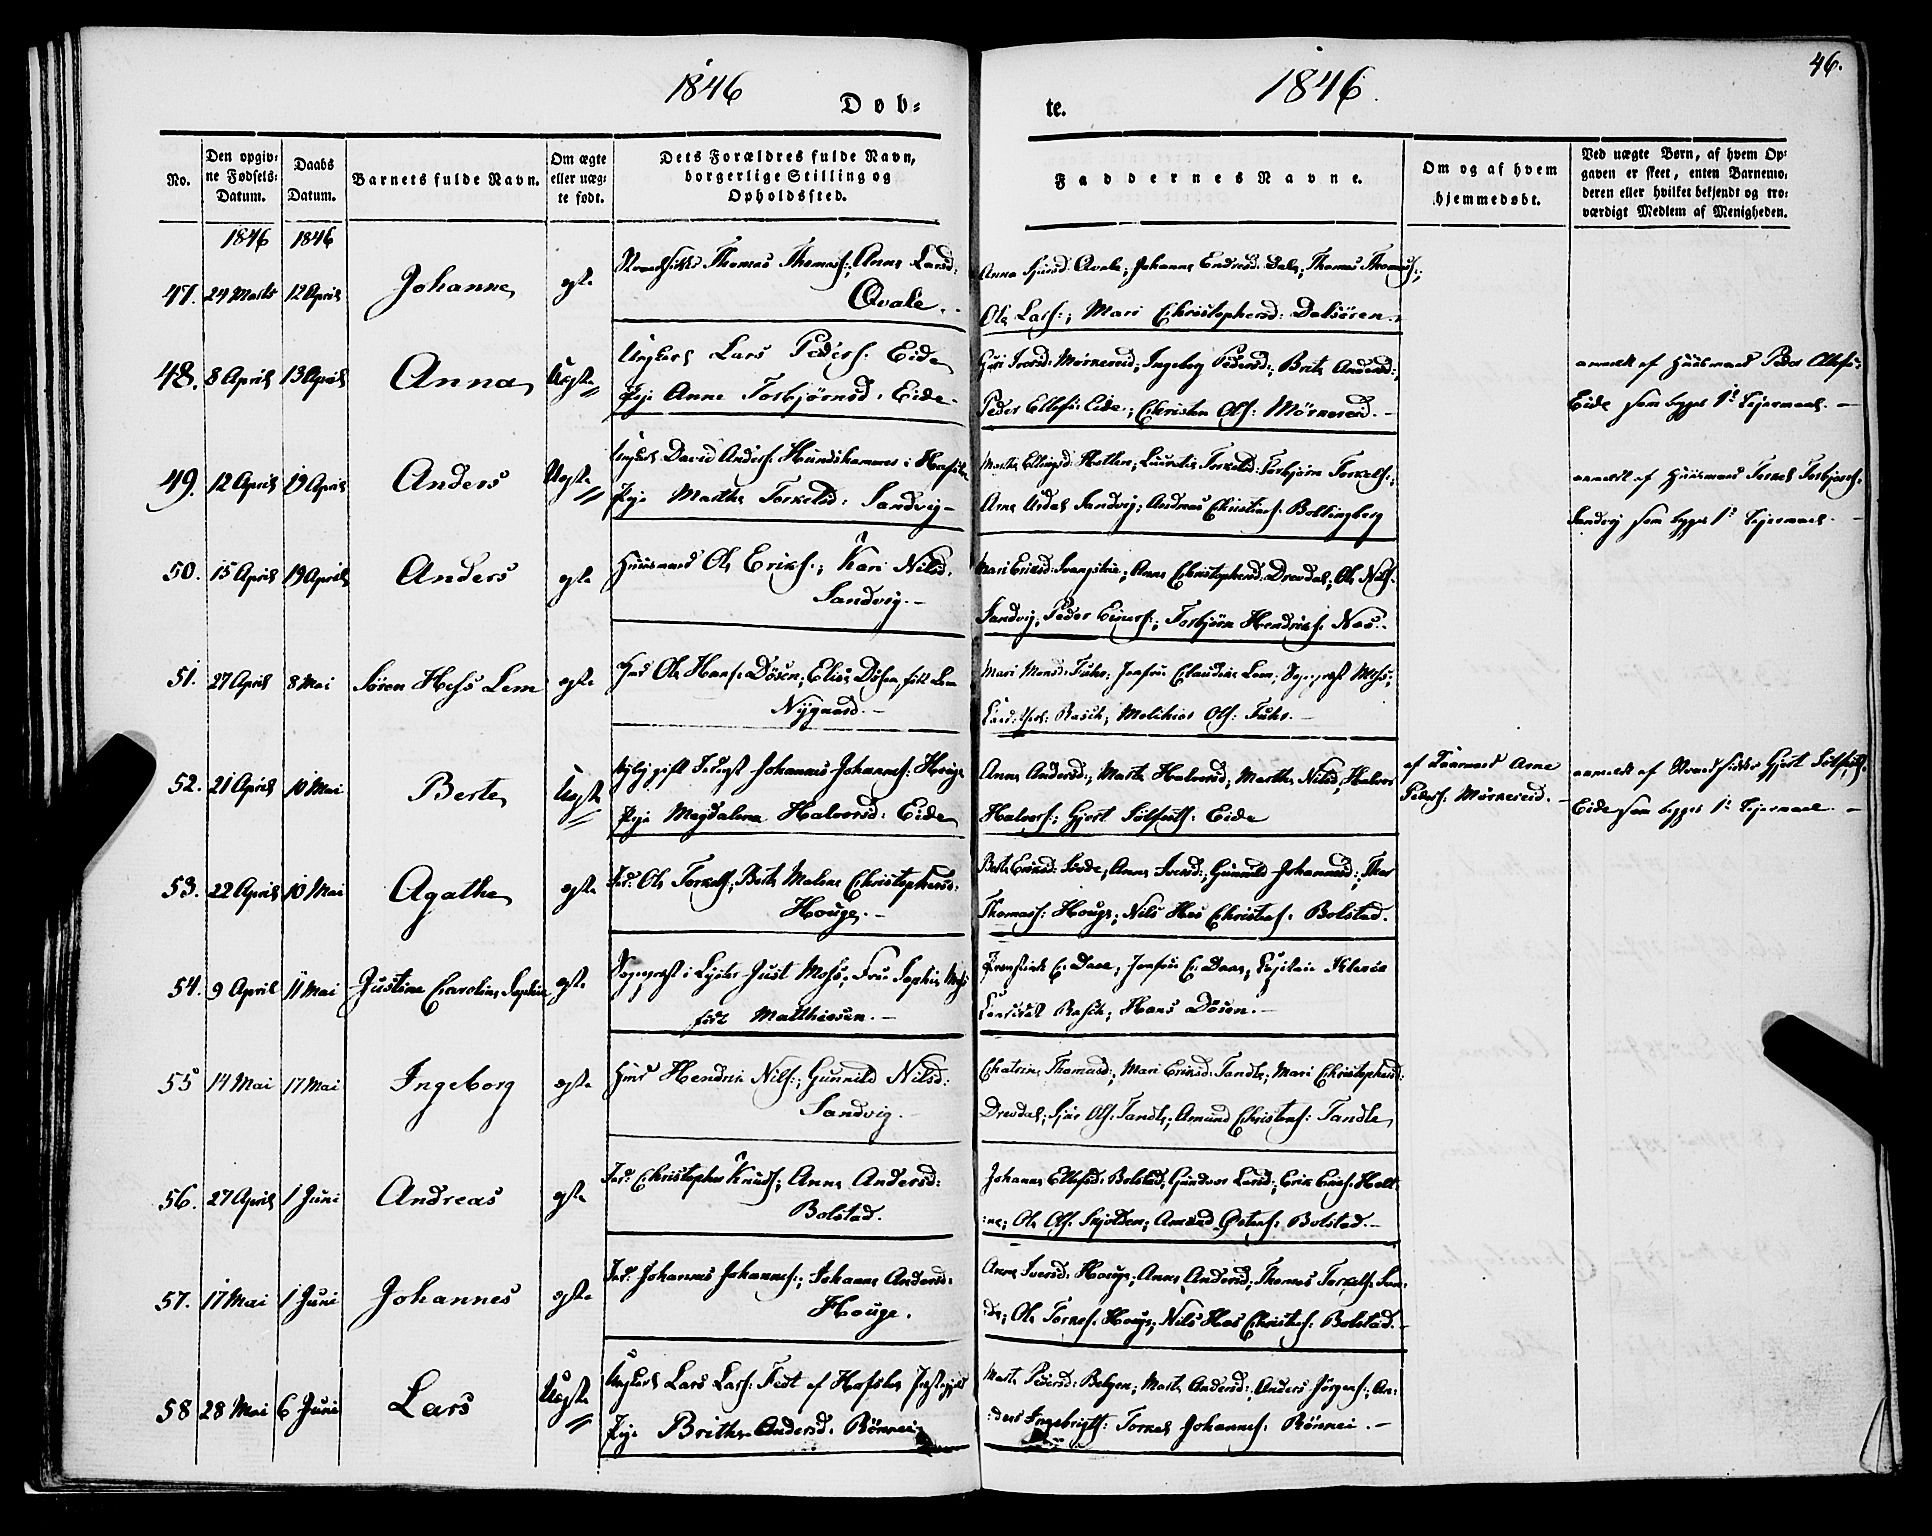 1846 Døb-
te. 1846. 46.
No. Den opgiv- ne Fødsels- Datum. Daabs Datum. Barnets fulde Navn. Om ægte eller uæg- te født. Dets Forældres fulde Navn, borgerlige Stilling og Opholdssted.
Faddernes Navne. Om og af hvem hjemmedøbt. Ved uægte Børn, af hvem Op- gaven er skeet, enten Barnemo- deren eller hvilket bekjendt og tro- værdigt Medlem af Menigheden.
1846 1846
47. 24 Marts 12 April Johanne egte Strandsidder Thomas Thomass:; Anna Larsd:
Qvale.
Anna Sjursd: Qvale; Johanne Endresd: Dale; Thomas Thomass:;
Ole Lars:; Mari Christophersd: Dalsøren.
48. 8 April 13 April Anna Uegte Ungkarl Lars Peders: Eide
Pige Anne Torbjørnsd: Eide
Guri Iversd: Mørkereid; Ingeborg Pedersd:; Brita Amundsd:;
Peder Ellefs: Eide; Christen Ols: Mørkereid.
anmeldt af Huusmand Peder Ellefs:
Eide som begges 1ste Leiermaal.
49. 12 April 19 April Anders Uegte Ungkarl David Anders: Hundshammer i Hafslo
Pige Marthe Torkelsd: Sandvig
Marthe Ellingsd: Hatlen; Lucretia Torkelsd: Torbjørn Torkels:;
Arne Ardal Sandvig; Andreas Christens: Bollingberg
anmeldt af Huusmand Torkel Torbjørns:
Sandvig som begges 1ste Leiermaal.
50. 15 April 19 April Anders egte Huusmand Ole Eriks:; Kari Nilsd:
Sandvig.
Mari Eriksd: Svangstue; Anna Christophersd: Drevdal; Ole Nils:
Sandvig; Peder Einars:; Torbjørn Hendriks: Nes.
51. 27 April 8 Mai Søren Hess Lem egte Hr Ole Hans: Døsen; Elise Døsen, født Lem
Nygaard.
Mari Monsd: Fuhr; Jomfru Claudine Lem; Sognepræst Mohs;
Rasch; Melkior Ols: Fuhr.
52. 21 April 10 Mai Berte Uegte Nylig gift Johannes Johannes: Houge
Pige Magdalena Halvorsd: Eide
Anna Andersd:; Marte Halvorsd; Marthe Nilsd; Halvor
Halvors: Gjert Eide
af Arne
Peders: Mørkereid.
anmeldt af Strandsidder Gjert
Eide som begges 1ste Leiermaal
53. 22 April 10 Mai Agathe egte Ole Torkels; Berte Malene Christophersd:
Houge.
Berte Eriksd: Anna Iversd:; Gunnild Johannesd:;
Thomass: Houge; Nils Has Christens: Bolstad.
54. 9 April 11 Mai Justine Caroline Sophie egte Sognepræst i Lyster Just Mohs; Frue Sophie Mohs
født Matthiesen.
C. Daae; Jomfru C. Daae;
Rasch; Hans Døsen.
55 14 Mai 17 Mai Ingeborg egte Hmd Hendrik Nils:; Gunnild Nilsd:
Sandvig.
Chatrine Thomasd:; Mari Eriksd: Tandle; Mari Christophersd:
Drevdal; Sjur Ols: Tandle; Amund Christens: Tandle
56. 27 April 1 Juni Andreas egte Christopher Knuds; Anna Andersd:
Bolstad.
Johanne Ellefsd: Bolstad; Gunvor Larsd:; Erik Eriks: Holt-
ne; Ole Ols. Skjolden; Amund Bolstad.
57. 17 Mai 1 Juni Johannes egte Johannes Johannes:; Johanne Andersd:
Houge.
Anna Iversd: Houge; Anna Andersd; Thomas Torkels:
Ole Torkels: Houge; Nils Has Christens: Bolstad.
58 28 Mai 6 Juni Lars Uegte Ungkarl Lars Lars: Fedt af Hafslo Præstegjeld
Pige Brithe Andersd: Rønnei
Marte Pedersd: Bolgen; Marte Andersd:; Anders Jørgens:; An-
ders Ingebrigts: Torkel Johannes: Rønnei.